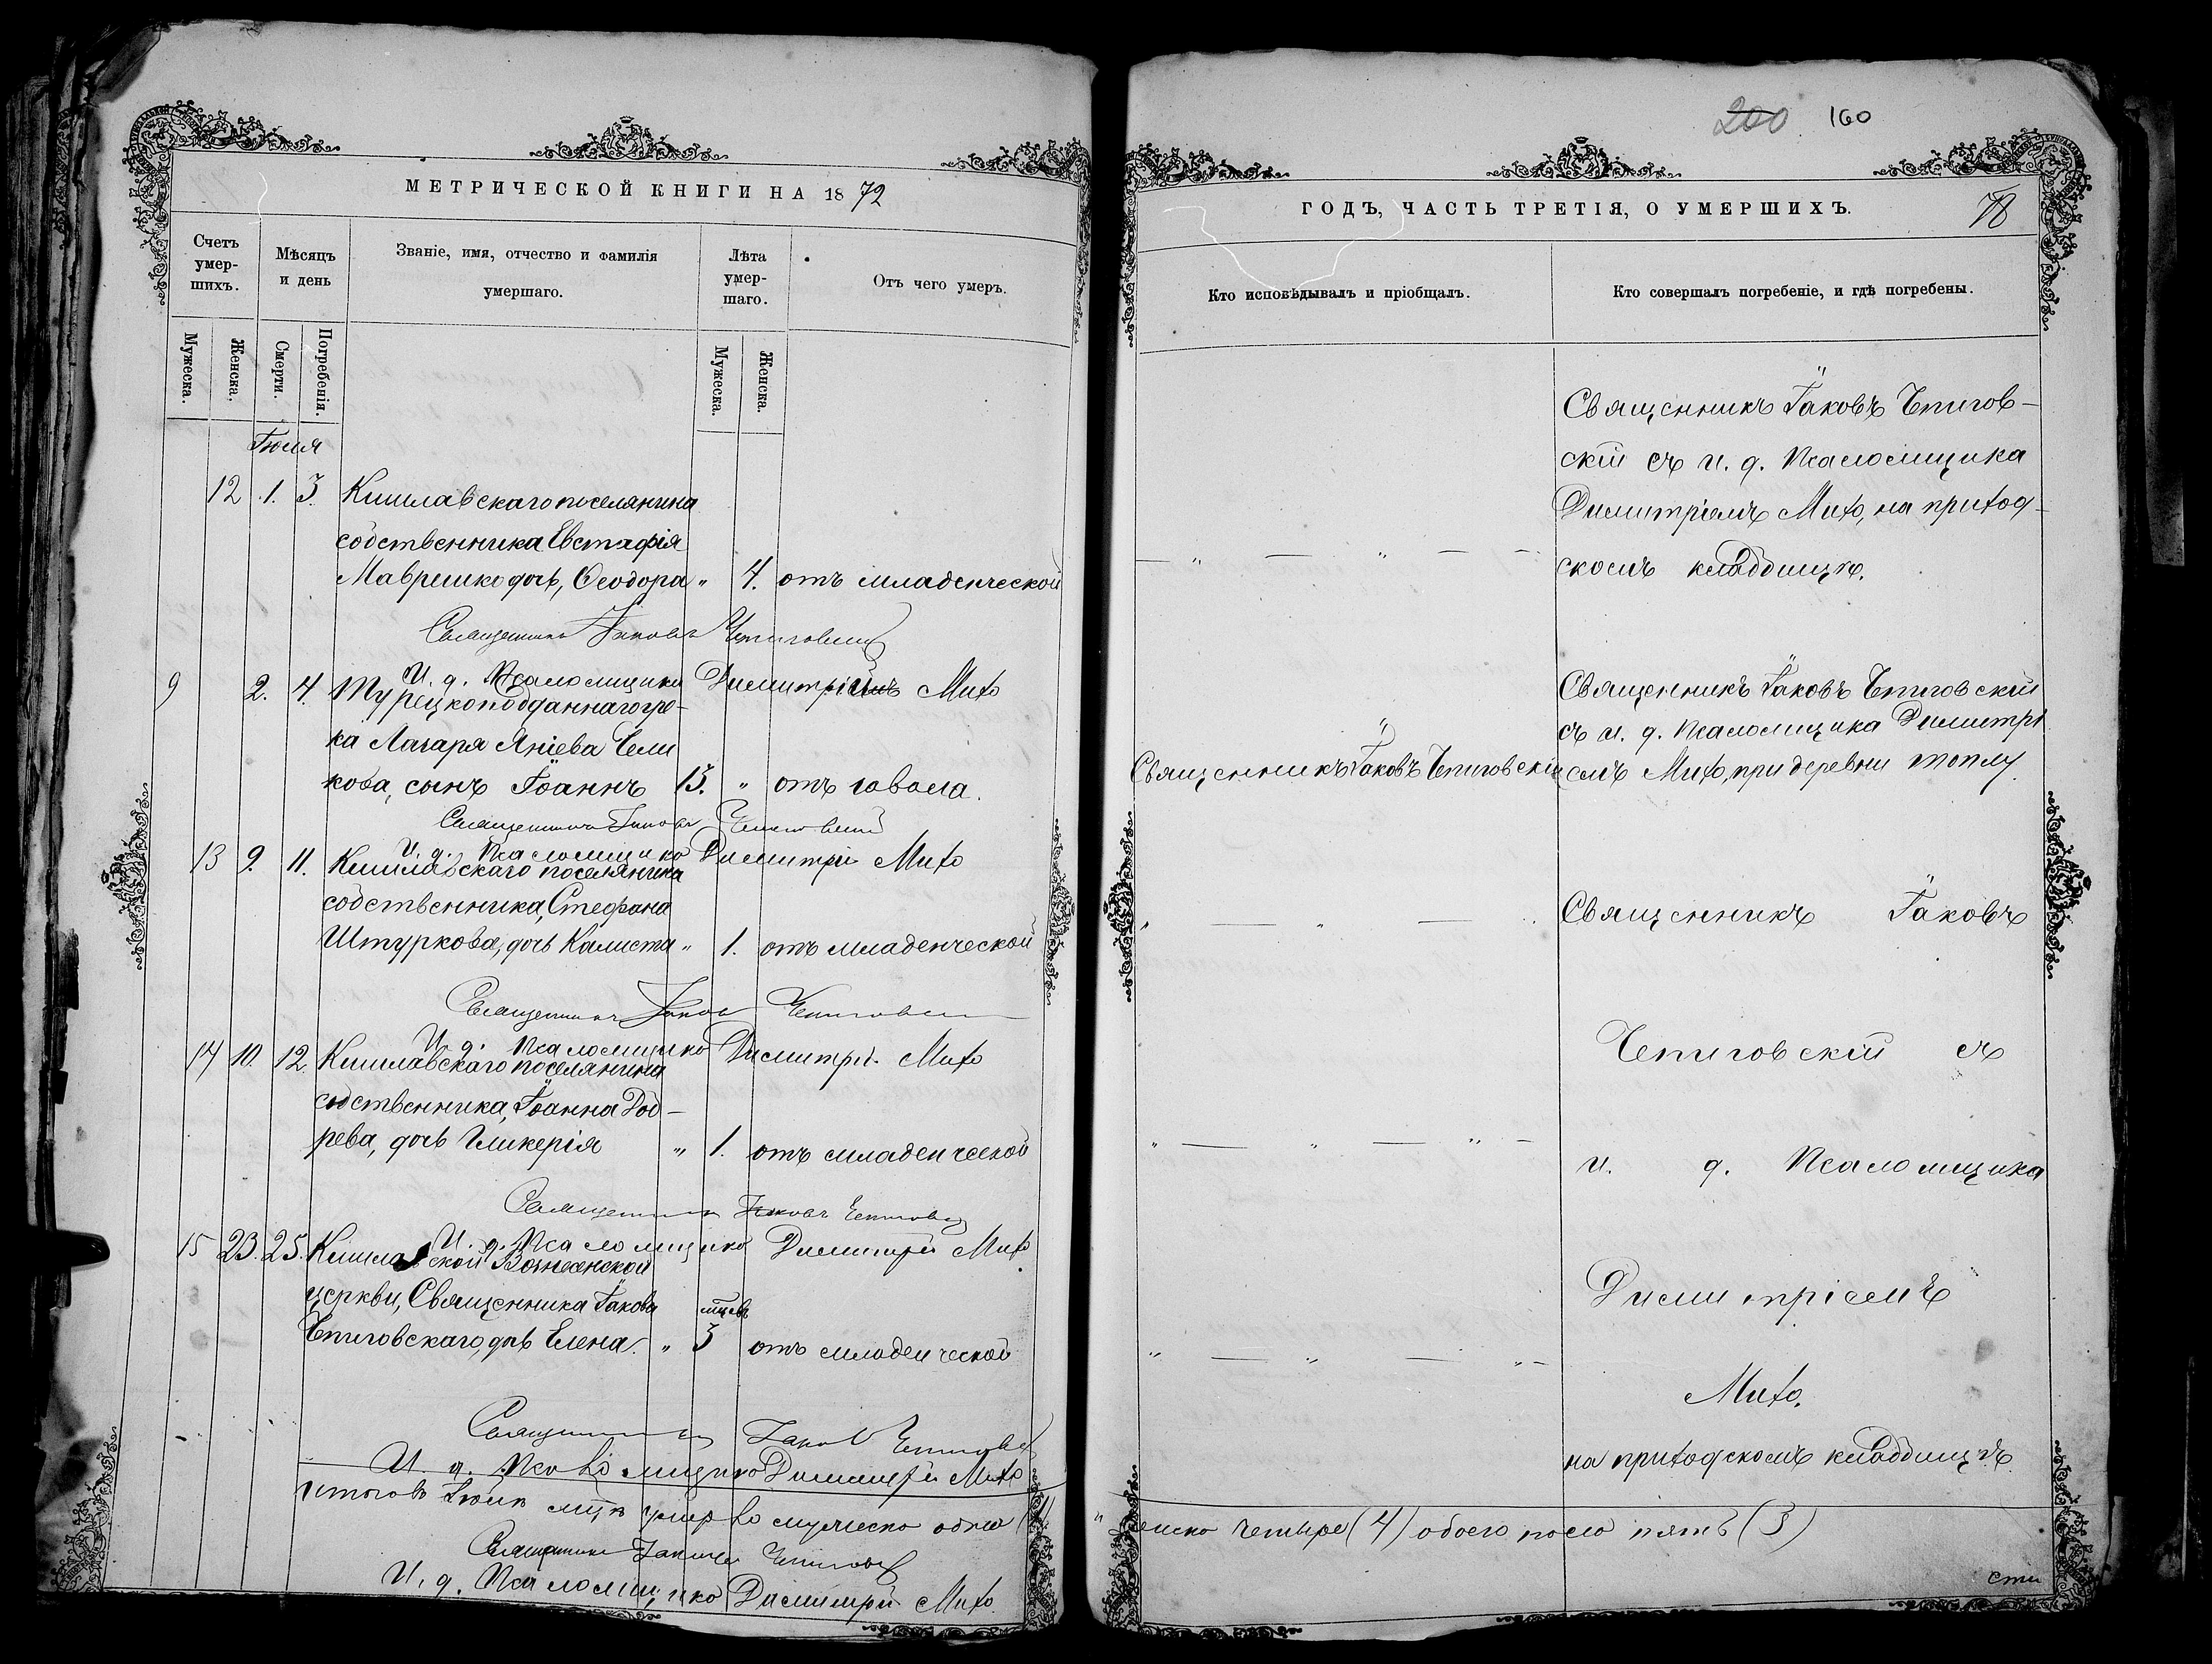 МЕТРИЧЕСКОЙ КНИГИ НА 1872
Счетъ умер-шихъ.
Мѣсяцъ и день
Званіе, имя, отчество и фамилія умершаго.
Лѣта умер-шаго.
Отъ чего умеръ.
Мужеска.
Женска.
Смерти.
Погребенія.
Мужеска.
Женска.
Іюля
12 1. 3. Кишлавскаго поселянина
собственника Евстафія
Маврешко дочь, Ѳеодора " 4. отъ младенческой
Священникъ Іаковъ Чепиговскій
И. д. Псаломщика Димитрій Михо
9 2. 4. Турецкоподданнаго гре-
ка Лазаря Яніева Чели
кова, сынъ Іоаннъ 13. "
Священникъ Іаковъ Чепиговскій
И. д. Псаломщика Димитрій Михо
13 9. 11. Кишлавскаго поселянина
собственника, Стефана
Штуркова, дочь Калиста " 1. отъ младенческой
Священникъ Іаковъ Чепиговскій
И. д. Псаломщика Димитрій Михо
14 10. 12. Кишлавскаго поселянина
собственника, Іоанна Дод-
рева, дочь Гликерія " 1. отъ младенческой
Священникъ Іаковъ Чепиговскій
И. д. Псаломщика Димитрій Михо
15 23. 25. Кишлавской Вознесенской
церкви, Священника Іакова
Чепиговскаго, дочь Елена. " мцевъ 3 отъ младенческой
Священникъ Іаковъ Чепиговскій
И. д. Псаломщика Димитрій Михо
Итогов Іюля мцѣ умерло мужеска одно (1)
Священникъ Іаковъ Чепиговскій
И. д. Псаломщика Димитрій Михо
200 160
ГОДЪ, ЧАСТЬ ТРЕТІЯ, О УМЕРШИХЪ.
78
Кто исповѣдывалъ и пріобщалъ.
Кто совершалъ погребеніе, и гдѣ погребены.
Священникъ Іаковъ Чепигов-
скій съ и. д. Псаломщика
Димитріемъ Михо, на приход-
скомъ кладбищѣ.
Священникъ Іаковъ Чепиговскій
съ и. д. Псаломщика Димитрі
Священникъ Іаковъ Чепиговскій
емъ Михо, при деревни Топлу.
Священникъ Іаковъ
Чепиговскій съ
и. д. Псаломщика
Димитріемъ
Михо.
на приходскомъ кладбищѣ.
женско четыре (4) обоего посо пять (5)